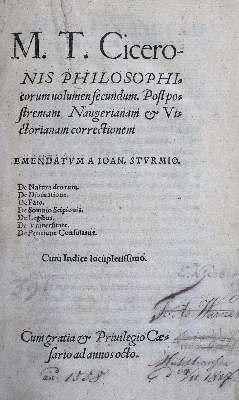 M. T. Cicero-
NIS PHILOSOPHI-
corum uolumen secundum. Post po-
stremam Naugerianam & Vi-
ctorianam correctionem
EMENDATVM A IOAN. STVRMIO.
De Natura deorum.
De Diuinatione.
De Fato.
De Somnio Scipionis.
De Legibus.
De Vniuersitate.
De Petitione Consulatus.
Cum Indice locupletissimo.
Cum gratia & Priuilegio Cæ-
sario ad annos octo.